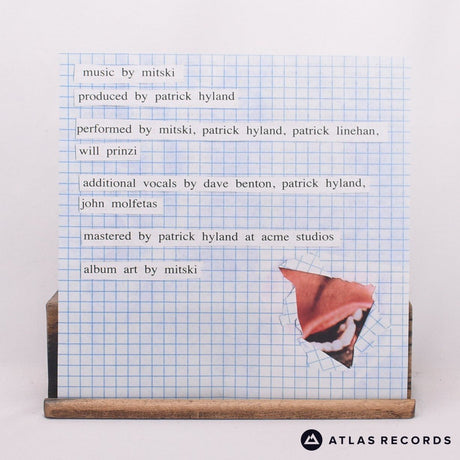 music by mitski
produced by patrick hyland
performed by mitski, patrick hyland, patrick linehan,
will prinzi
additional vocals by dave benton, patrick hyland,
john molfetas
mastered by patrick hyland at acme studios
album art by mitski
ATLAS RECORDS